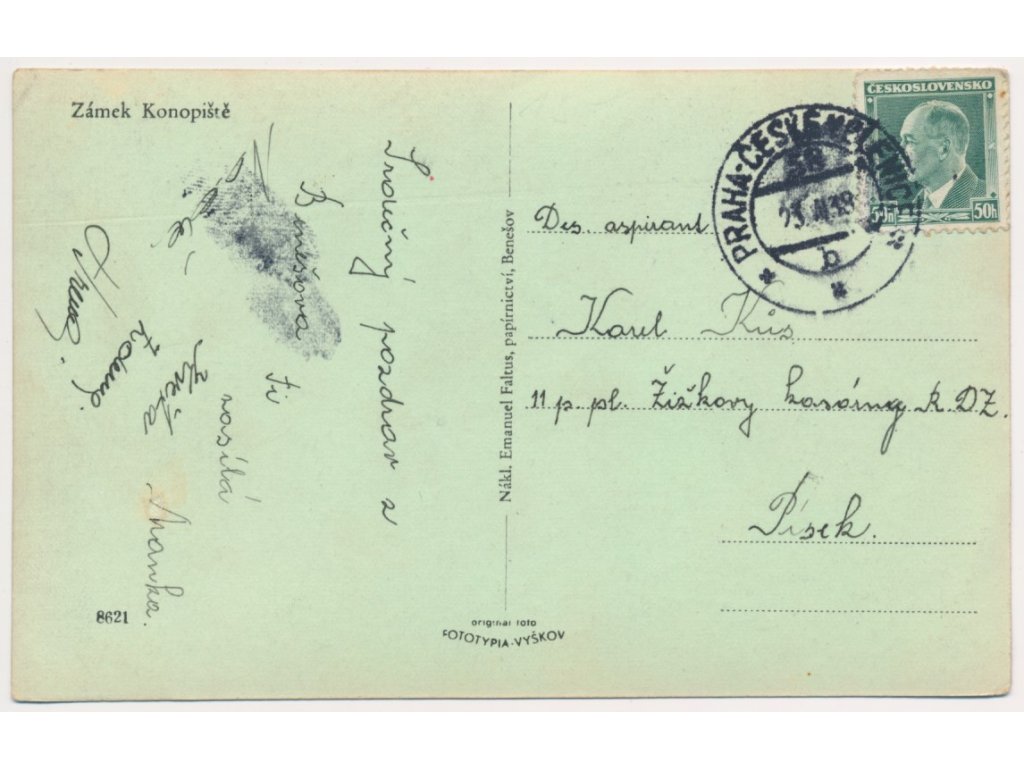 Zámek Konopiště
Srdečný pozdrav z
Benešova
ti
zasílá
Květa
Mařka.
8621
Nákl. Emanuel Faltus, papírnictví, Benešov
original foto
FOTOTYPIA-VYŠKOV
ČESKOSLOVENSKO
50h 50h
PRAHA-ČESKÉ
b
Des. aspirant
Karel Kůs
11 p. pl. Žižkovy kasárny R. DZ.
Písek.